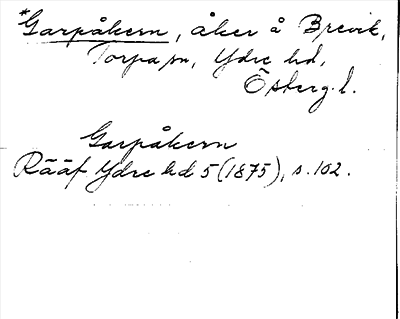 *Garpåkern, åker å Brevik,
Torpa sn, Ydre hd,
Östergl.
Garpåkern
Rääf Ydre hd 5 (1875), s. 102.